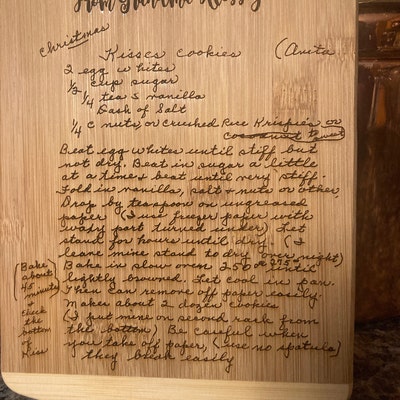 Christmas
Kisses Cookies (Anita
2 egg whites
1/2 cup sugar
1/4 tea s vanilla
Dash of Salt
1/4 c nuts, or crushed Rice Krispies or
cocoanut
Beat egg whites until stiff but
not dry. Beat in sugar a little
at a time & beat until very stiff.
Fold in vanilla, salt & nuts or other
Drop by teaspoon on ungreased
paper (I use frezer paper with
waxy part turned under) Let
stand for hours until dry. (I
leave mine stand to dry over night)
Bake in slow oven 250 or 275 until
lightly browned. Let cool in pan.
Then can remove off paper easily.
Makes about 2 dozen cookies
(I put mine on second rack from
the bottom) Be careful when
you take off paper, (use no spatula)
they break easily
(Bake
about
45
minutes
+
check
the
bottom
of
Kiss)